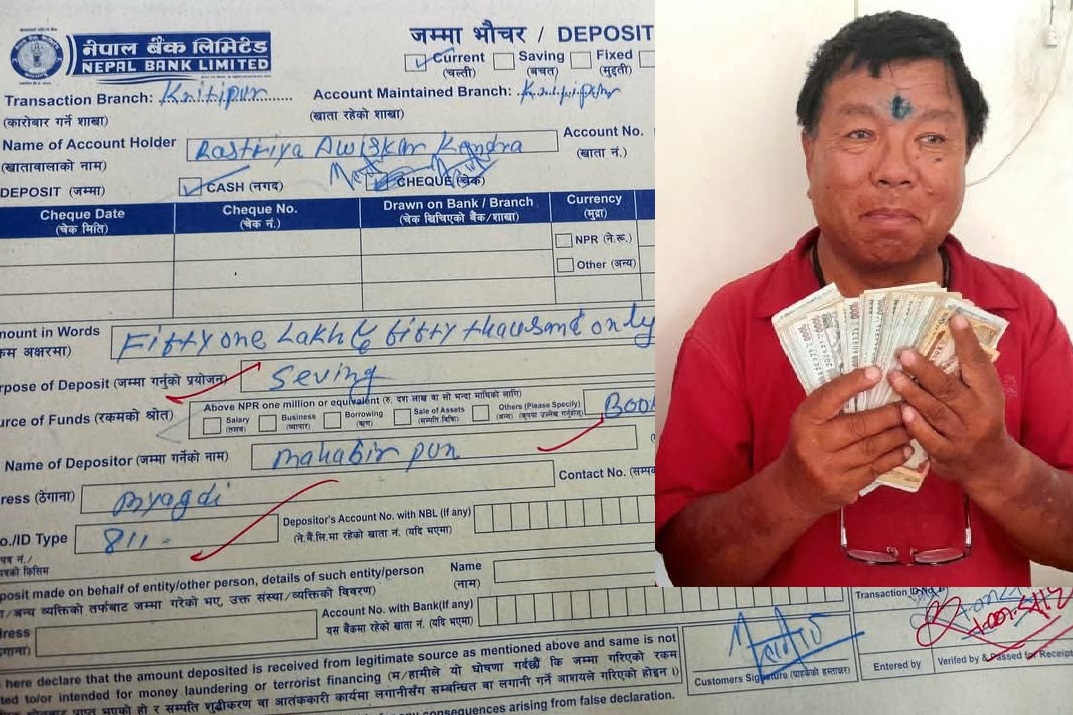 नेपाल बैंक लिमिटेड
NEPAL BANK LIMITED
जम्मा भौचर / DEPOSIT
Current (चल्ती) Saving (बचत) Fixed (मुद्दती)
Transaction Branch: Kritipur
(कारोबार गर्ने शाखा)
Account Maintained Branch: Kritipur
(खाता रहेको शाखा)
Name of Account Holder Rastriya Awiskar Kendra
(खातावालाको नाम)
Account No.
(खाता नं.)
DEPOSIT (जम्मा) CASH (नगद) CHEQUE (चेक)
Cheque Date Cheque No. Drawn on Bank / Branch Currency
(चेक मिति) (चेक नं.) (चेक खिचिएको बैंक/शाखा) (मुद्रा)
NPR (ने.रू.)
Other (अन्य)
mount in Words Fifty one Lakh & fifty thousand only
कम अक्षरमा)
rpose of Deposit (जम्मा गर्नुको प्रयोजन) Seving
Above NPR one million or equivalent (रु. दश लाख वा सो भन्दा माथिको लागि)
urce of Funds (रकमको श्रोत) Salary Business Borrowing Sale of Assets Others (Please Specify) Book
(तलब) (व्यापार) (ऋण) (सम्पत्ति बिक्रि) (अन्य)
Name of Depositor (जम्मा गर्नेको नाम) mahabir pun
ress (ठेगाना) myagdi
Contact No. (सम्पर्क
o./ID Type 811-
Depositor's Account No. with NBL (If any)
(ने.बै.लि.मा रहेको खाता नं. (यदि भएमा)
posit made on behalf of entity/other person, details of such entity/person
/अन्य व्यक्तिको तर्फबाट जम्मा गरेको भए, उक्त संस्था/व्यक्तिको विवरण)
Name
(नाम)
dress
Account No. with Bank(If any)
यस बैंकमा रहेको खाता नं. (यदि भएमा)
here declare that the amount deposited is received from legitimate source as mentioned above and same is not
ted to/or intended for money laundering or terrorist financing (म/हामीले यो घोषणा गर्दछौं कि जम्मा गरिएको रकम
प्राप्त भएको हो र सम्पत्ति शुद्धीकरण वा आतंककारी कार्यमा लगानीसँग सम्बन्धित वा लगानी गर्ने आशयले गरिएको होइन ।)
consequences arising from false declaration.
Customers Signature (ग्राहकको हस्ताक्षर)
Transaction ID No.
Entered by
Verified by & Passed for Receipt